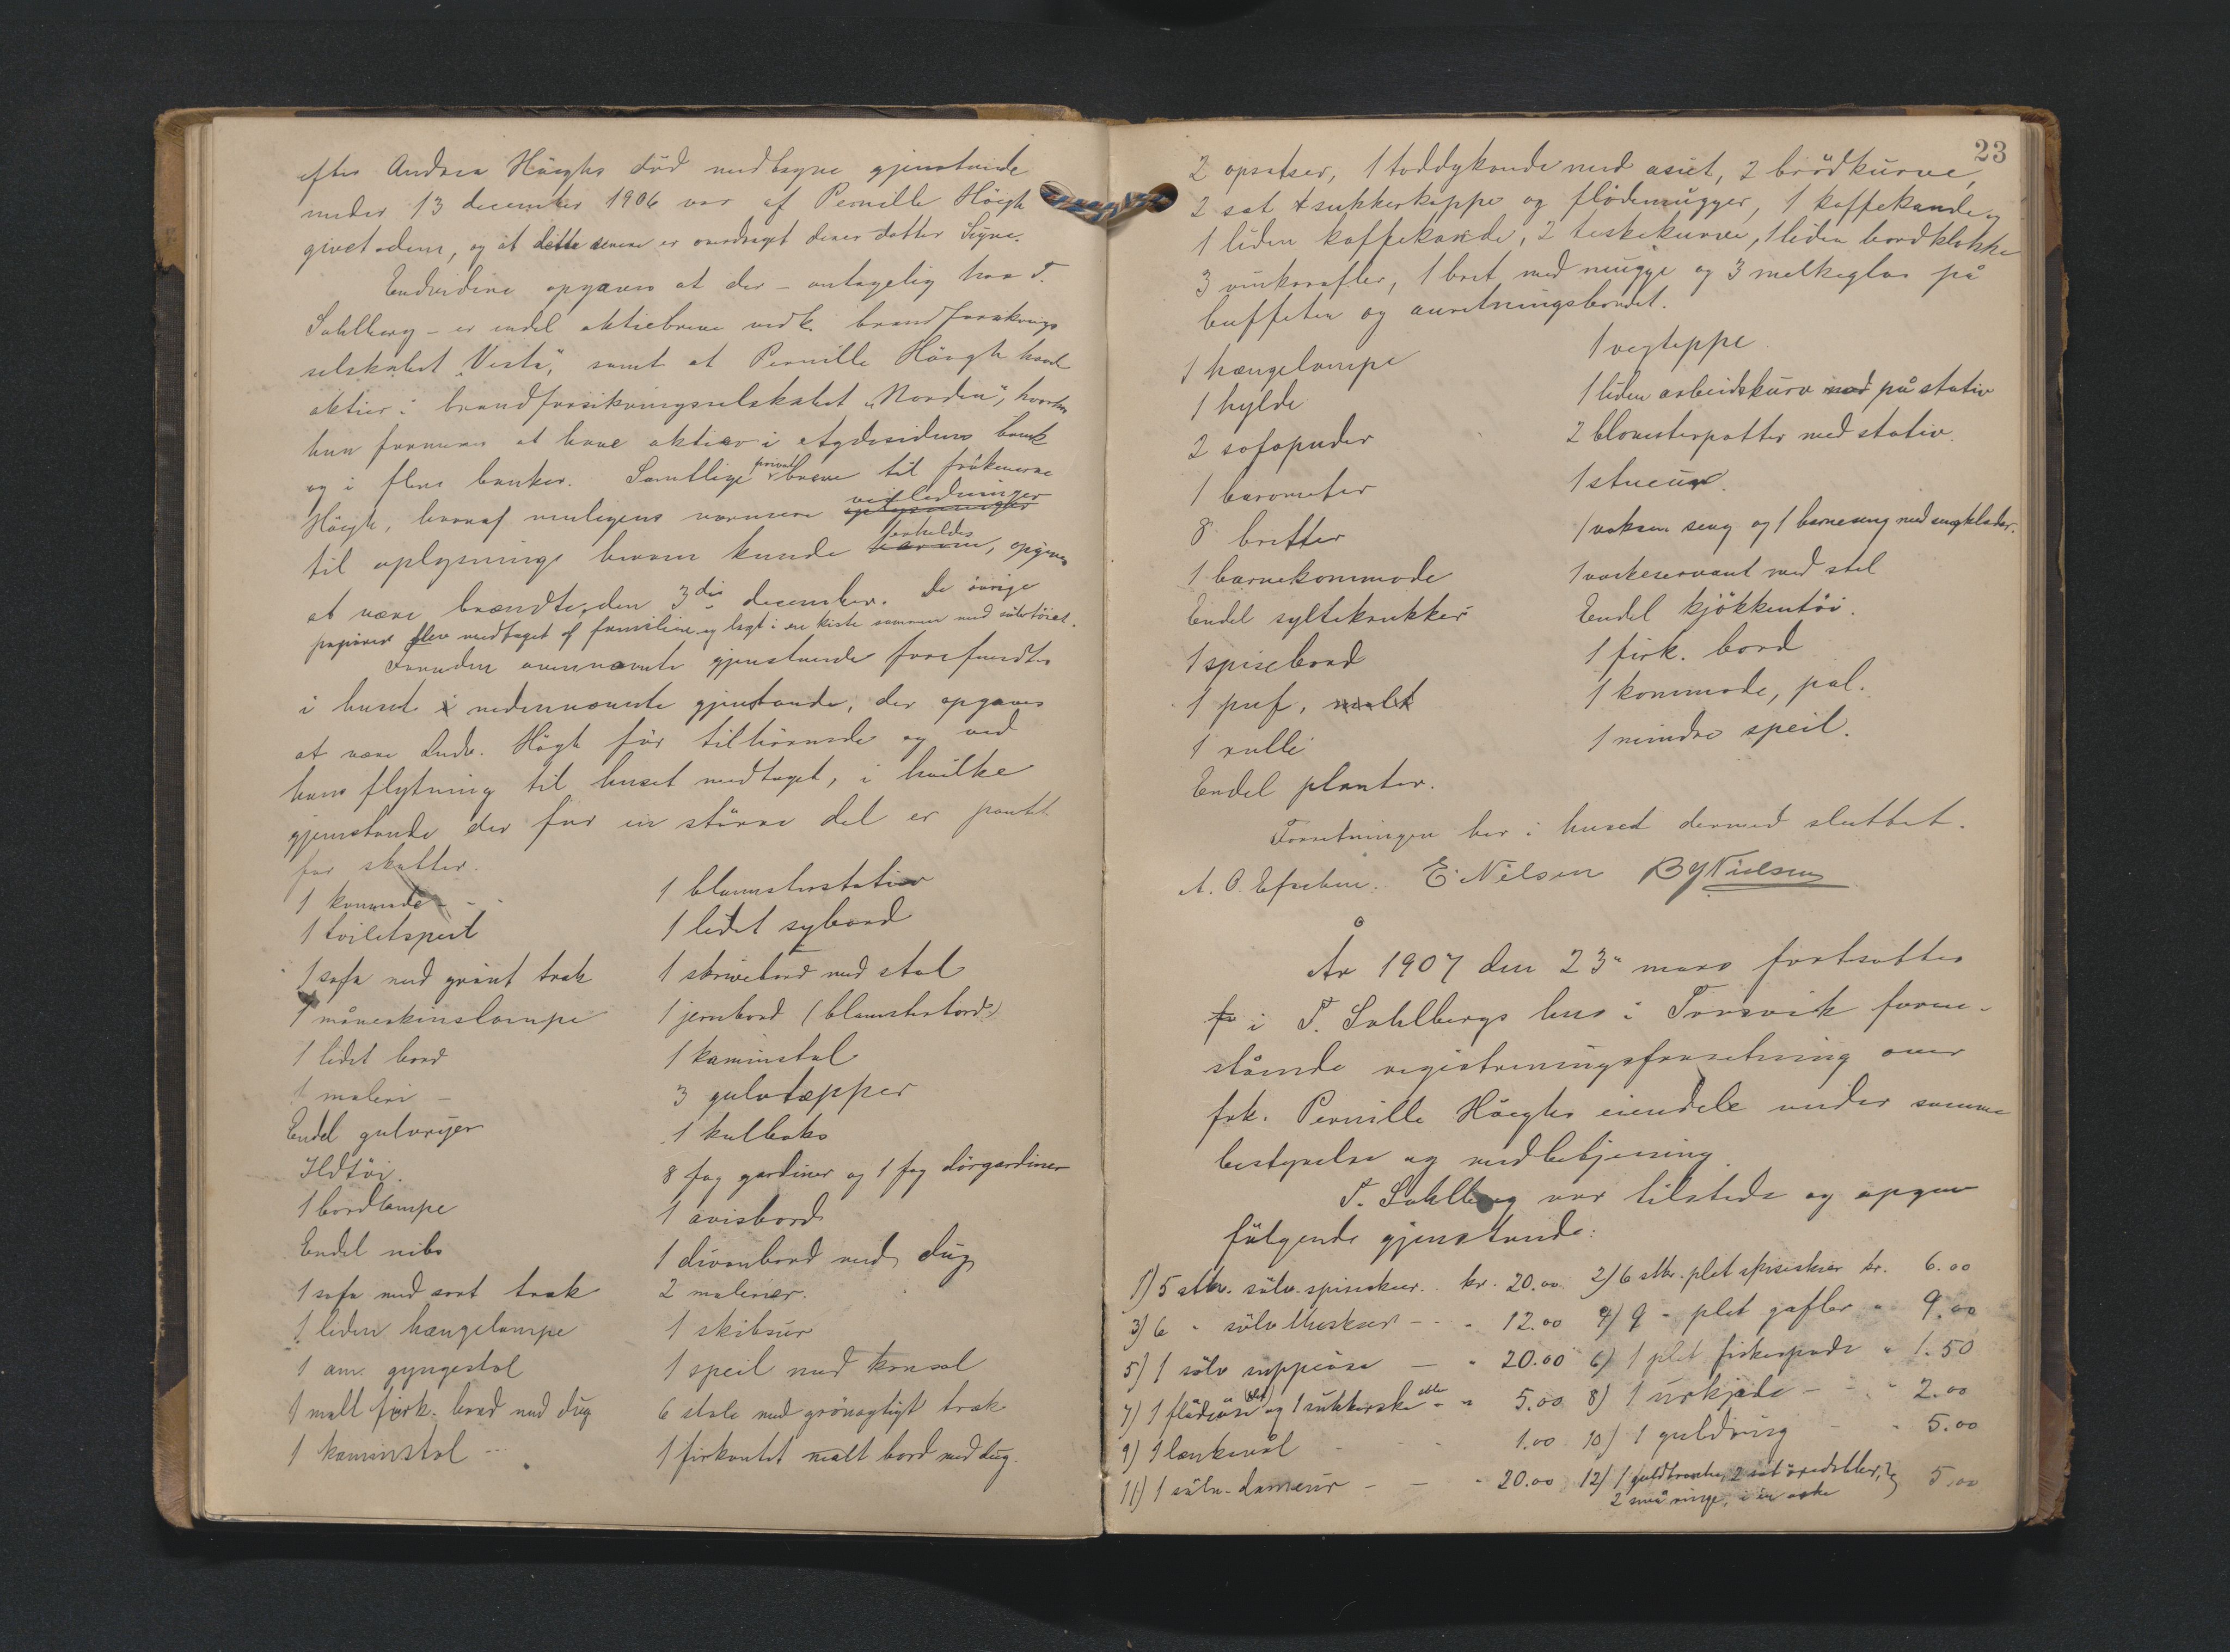 efter Andrea Höeghs död medtagne gjenstande
under 13 december 1906 var af Pernille Höegh
givet dem, og at dette senere er overdraget deres datter Signe.
Endvidere opgaves at der – antagelig hos T.
Sahlberg – er endel aktiebreve vedk. brandforsikrings
selskabet "Vesta", samt at Pernille Höegh havde
aktier i brandforsikringsselskabet "Norden", hvorhos
hun formenes at have aktier i Agdesidens bank
og i flere banker. Samtlige private breve til frökenerne
Höegh, hvoraf muligens nærmere veiledninger
til oplysninge herom kunde erholdes, opgives
at være brændte den 3die december. De övrige
papirer blev medtaget af familien og lagt i en kiste sammen med sölvtöiet.
Foruden ovennævnte gjenstande forefandtes
i huset nedennævnte gjenstande, der opgaves
at være Ludv. Högh för tilhörende og ved
hans flytning til huset medtaget, i hvilke
gjenstande der for en större del er pantet
for skatter.
1 kommode
1 toiletspeil
1 sofa med grönt træk
1 måneskinslampe
1 lidet bord
1 maleri
Endel gulvryer
Ildtöi.
1 bordlampe
Endel nibs
1 sofa med sort træk
1 liden hængelampe
1 am. gyngestol
1 malt firk. bord med dug
1 kaminstol
1 blomsterstativ
1 lidet sybord
1 skrivebord med stol
1 jernbord (blomsterbord)
1 kaminstol
3 gulvtæpper
1 kulboks
8 fag gardiner og 1 fag dörgardiner
1 avisbord
1 divanbord med dug
2 malerier.
1 skibsur
1 speil med konsol
6 stole med grönagtigt træk
1 firkantet malt bord med dug.
23
2 opsatser, 1 toddykande med asiet, 2 brödkurve,
2 sæt sukkerkoppe og flödemugger, 1 kaffekande,
1 liden kaffekande, 2 teskekurve, 1 liden bordklokke
3 vinkarafler, 1 bret med mugge og 3 melkeglas på
buffeten og anretningsbordet.
1 hængelampe
1 hylde
2 sofapuder
1 barometer
8 bretter
1 barnekommode
Endel syltekrukker
1 spisebord
1 puf, malt
1 rulle
Endel planter.
1 vegteppe
1 liden arbeidskurv med på stativ
2 blomsterpotter med stativ.
1 stueur.
1 voksen seng og 1 barneseng med sengklæder.
1 vaskeservant med stel
Endel kjökkentöi.
1 firk. bord
1 kommode, pol.
1 mindre speil.
Forretningen her i huset dermed sluttet.
E. Nilsen
År 1907 den 23. mars fortsattes
i T. Sahlbergs hus i Torsvik foran-
stående registreringsforretning over
frk. Pernille Höeghs eiendele under samme
bestyrelse og medbetjening.
T. Sahlberg var tilstede og opgav
fölgende gjenstande:
1) 5 stkr. sölv. spiseskeer. kr. 20.00 2) 6 stkr. plet spiseskeer kr. 6.00
3) 6 " sölv theskeer – " 12.00 4) 9 " plet gafler " 9.00
5) 1 sölv suppeöse — " 20.00 6) 1 plet fiskespade " 1.50
7) 1 flödeöse (plet) og 1 sukkerske " 5.00 8) 1 urkjede – " 2.00
9) 1 lænkenål 1.00 10) 1 guldring " 5.00
11) 1 sölv-dameur — " 20.00 12) 1 guldbroche, 2 sæt öredobber, og 5.00
2 små ringe, i en æske